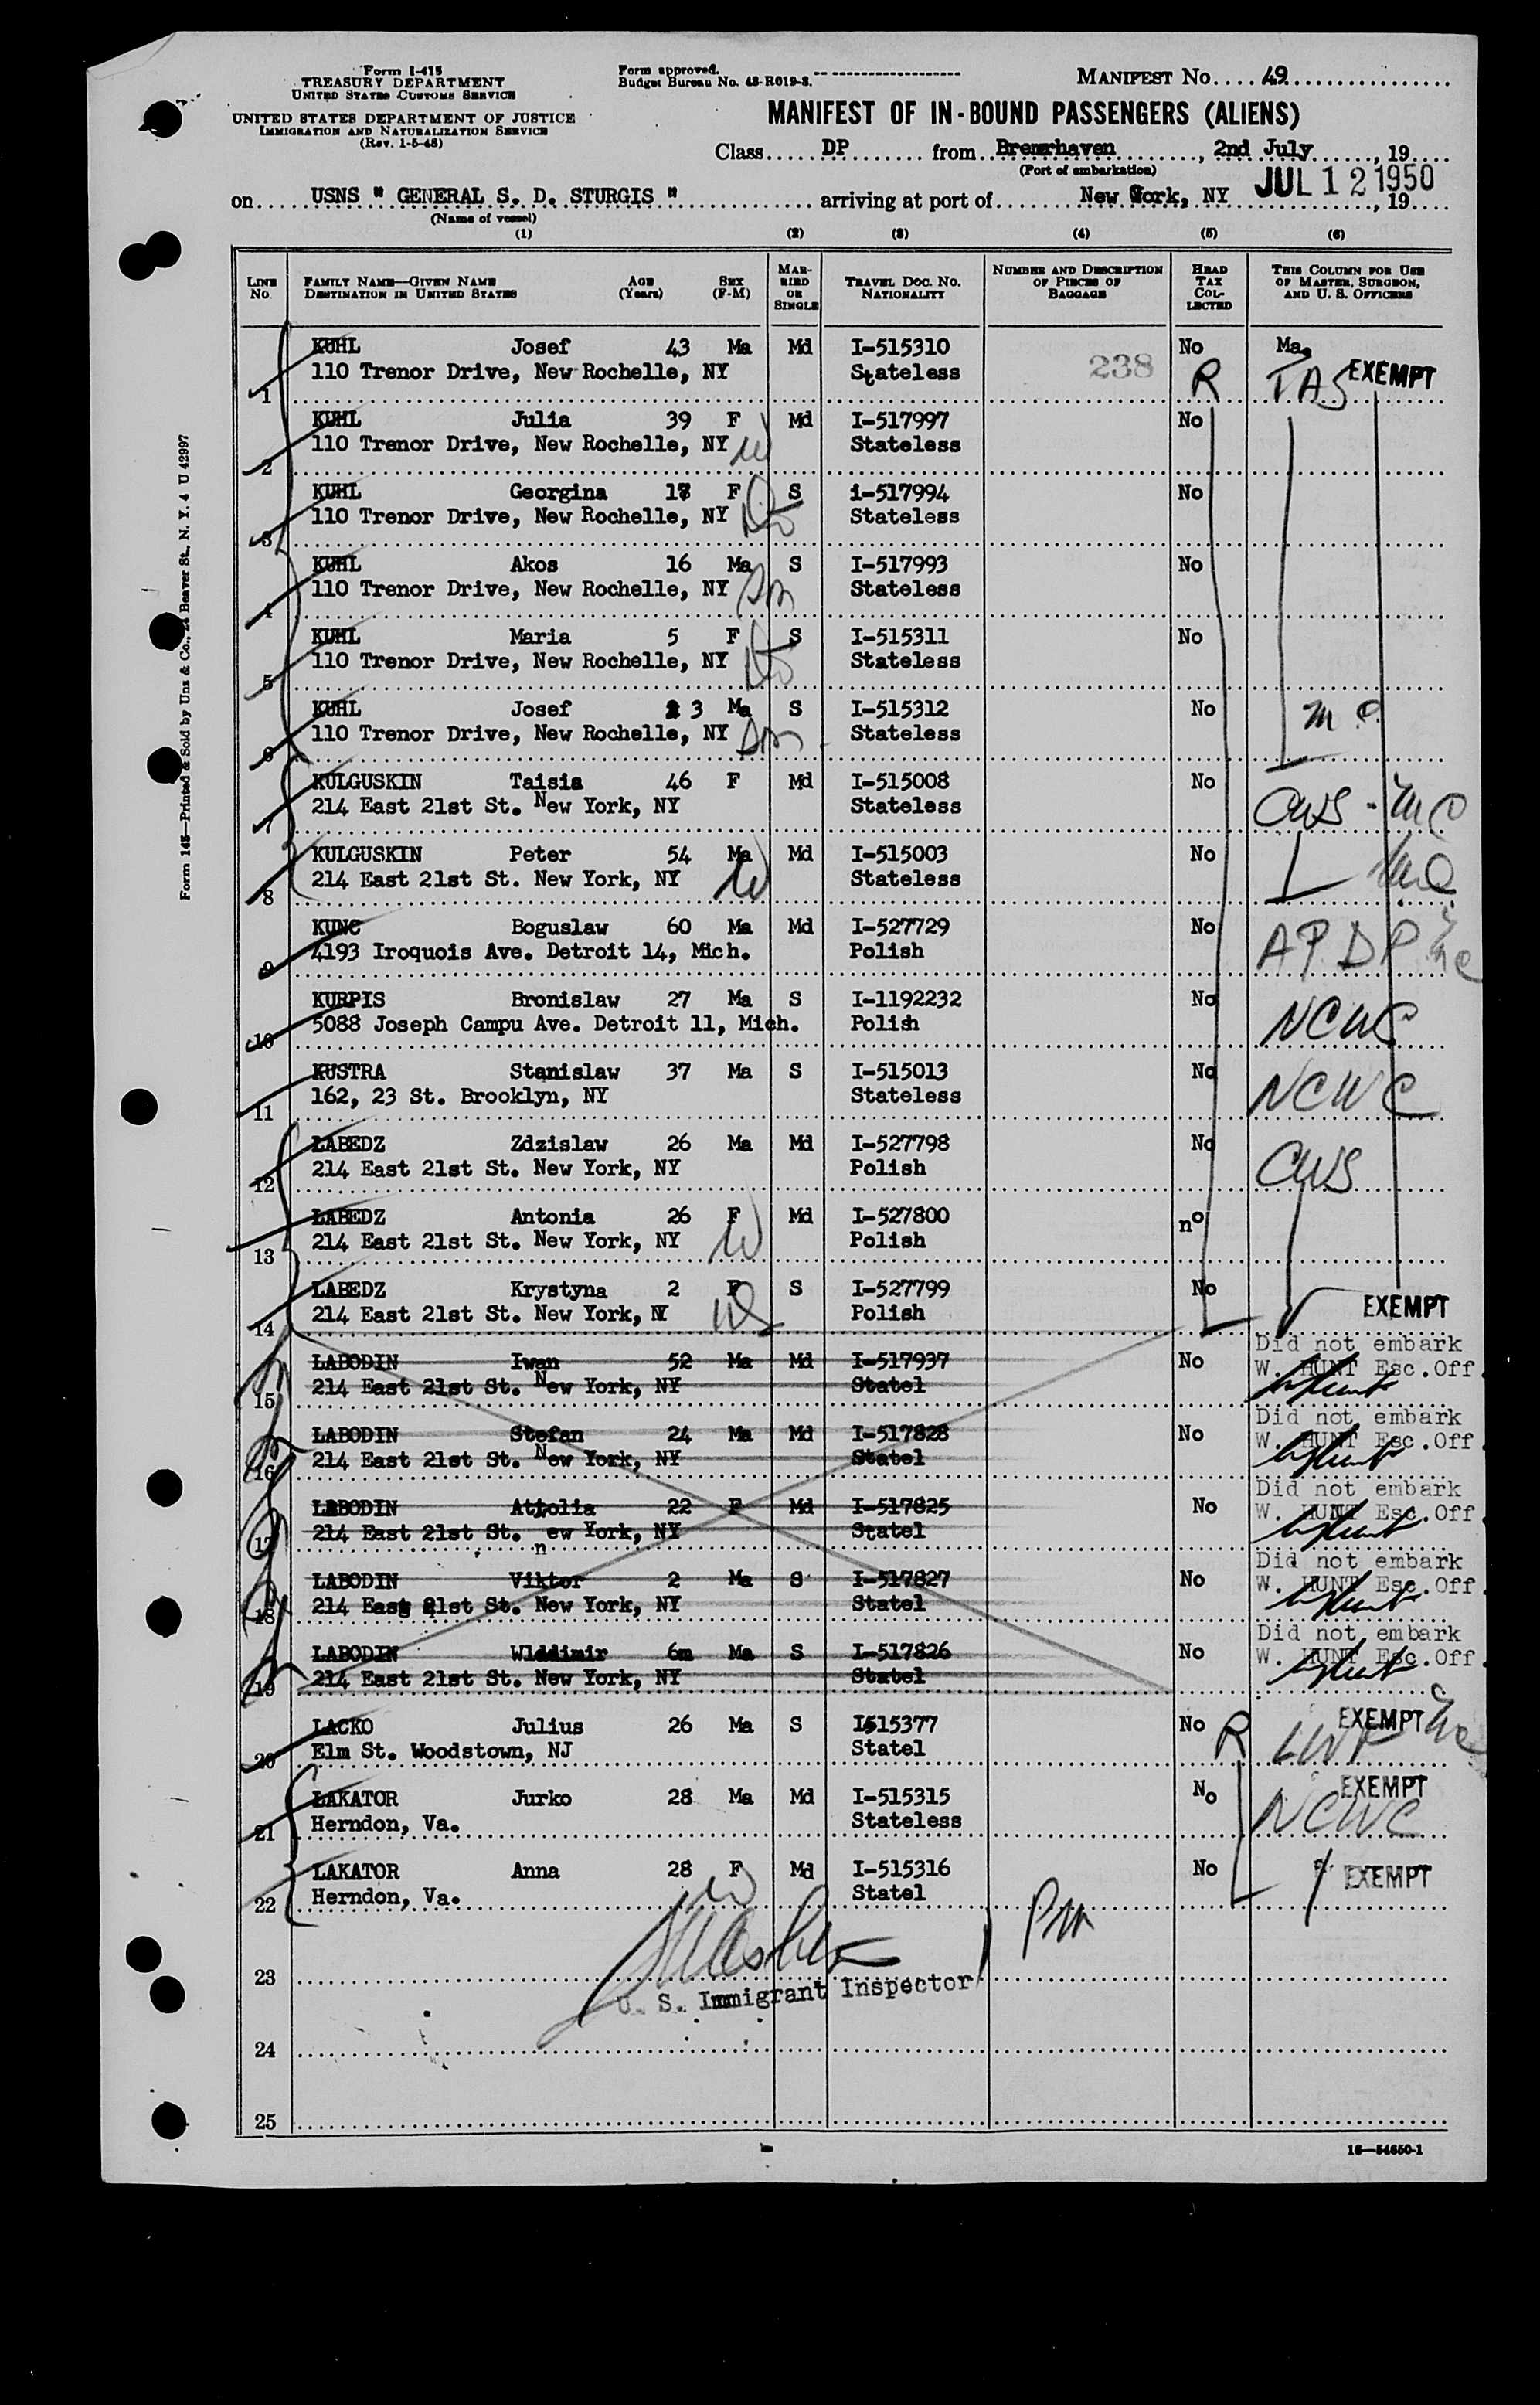 Form I-415
TREASURY DEPARTMENT
UNITED STATES CUSTOMS SERVICE
UNITED STATES DEPARTMENT OF JUSTICE
IMMIGRATION AND NATURALIZATION SERVICE
(Rev. 1-5-48)
Form approved.
Budget Bureau No. 43-R019-3.
MANIFEST No. 49
MANIFEST OF IN-BOUND PASSENGERS (ALIENS)
Class DP from Bremerhaven, 2nd July, 19
(Port of embarkation)
on USNS " GENERAL S. D. STURGIS " arriving at port of New York, NY JUL 12 1950, 19
(Name of vessel)
(1) (2) (3) (4) (5) (6)
LINE No. FAMILY NAME—GIVEN NAME DESTINATION IN UNITED STATES AGE (Years) SEX (F-M) MARRIED OR SINGLE TRAVEL DOC. NO. NATIONALITY NUMBER AND DESCRIPTION OF PIECES OF BAGGAGE HEAD TAX COLLECTED THIS COLUMN FOR USE OF MASTER, SURGEON, AND U. S. OFFICERS
KUHL Josef 43 Ma Md I-515310 No Ma.
1 110 Trenor Drive, New Rochelle, NY Stateless 238 R TAS EXEMPT
KUHL Julia 39 F Md I-517997 No
2 110 Trenor Drive, New Rochelle, NY W Stateless
KUHL Georgina 18 F S i-517994 No
3 110 Trenor Drive, New Rochelle, NY Stateless
KUHL Akos 16 Ma S I-517993 No
4 110 Trenor Drive, New Rochelle, NY Son Stateless
KUHL Maria 5 F S I-515311 No
5 110 Trenor Drive, New Rochelle, NY Stateless
KUHL Josef 3 Ma S I-515312 No m.c.
6 110 Trenor Drive, New Rochelle, NY Son Stateless
KULGUSKIN Taisia 46 F Md I-515008 No
7 214 East 21st St. New York, NY Stateless CWS - mc
KULGUSKIN Peter 54 Ma Md I-515003 No
8 214 East 21st St. New York, NY W Stateless
KUNC Boguslaw 60 Ma Md I-527729 No
9 4193 Iroquois Ave. Detroit 14, Mich. Polish APDP
KURPIS Bronislaw 27 Ma S I-1192232 No
10 5088 Joseph Campu Ave. Detroit 11, Mich. Polish NCWC
KUSTRA Stanislaw 37 Ma S I-515013 No
11 162, 23 St. Brooklyn, NY Stateless NCWC
LABEDZ Zdzislaw 26 Ma Md I-527798 No
12 214 East 21st St. New York, NY Polish CWS
LABEDZ Antonia 26 F Md I-527800 no
13 214 East 21st St. New York, NY W Polish
LABEDZ Krystyna 2 F S I-527799 No
14 214 East 21st St. New York, N Polish EXEMPT
LABODIN Iwan 52 Ma Md I-517937 No Did not embark
15 214 East 21st St. New York, NY Statel W. HUNT Esc.Off.
LABODIN Stefan 24 Ma Md I-517828 No Did not embark
16 214 East 21st St. New York, NY Statel W. HUNT Esc.Off.
LABODIN Attolia 22 F Md I-517825 No Did not embark
17 214 East 21st St. ew York, NY Statel W. HUNT Esc.Off.
n
LABODIN Viktor 2 Ma S I-517827 No Did not embark
18 214 East 21st St. New York, NY Statel W. HUNT Esc.Off.
LABODIN Wlddimir 6m Ma S I-517826 No Did not embark
19 214 East 21st St. New York, NY Statel W. HUNT Esc.Off.
LACKO Julius 26 Ma S I515377 No R EXEMPT
20 Elm St. Woodstown, NJ Statel LWF
LAKATOR Jurko 28 Ma Md I-515315 No EXEMPT
21 Herndon, Va. Stateless NCWC
LAKATOR Anna 28 F Md I-515316 No EXEMPT
22 Herndon, Va. W Statel
23
U. S. Immigrant Inspector
24
25
16—54650-1
Form 145—Printed & Sold by Unz & Co., 24 Beaver St., N. Y. 4 U 42997